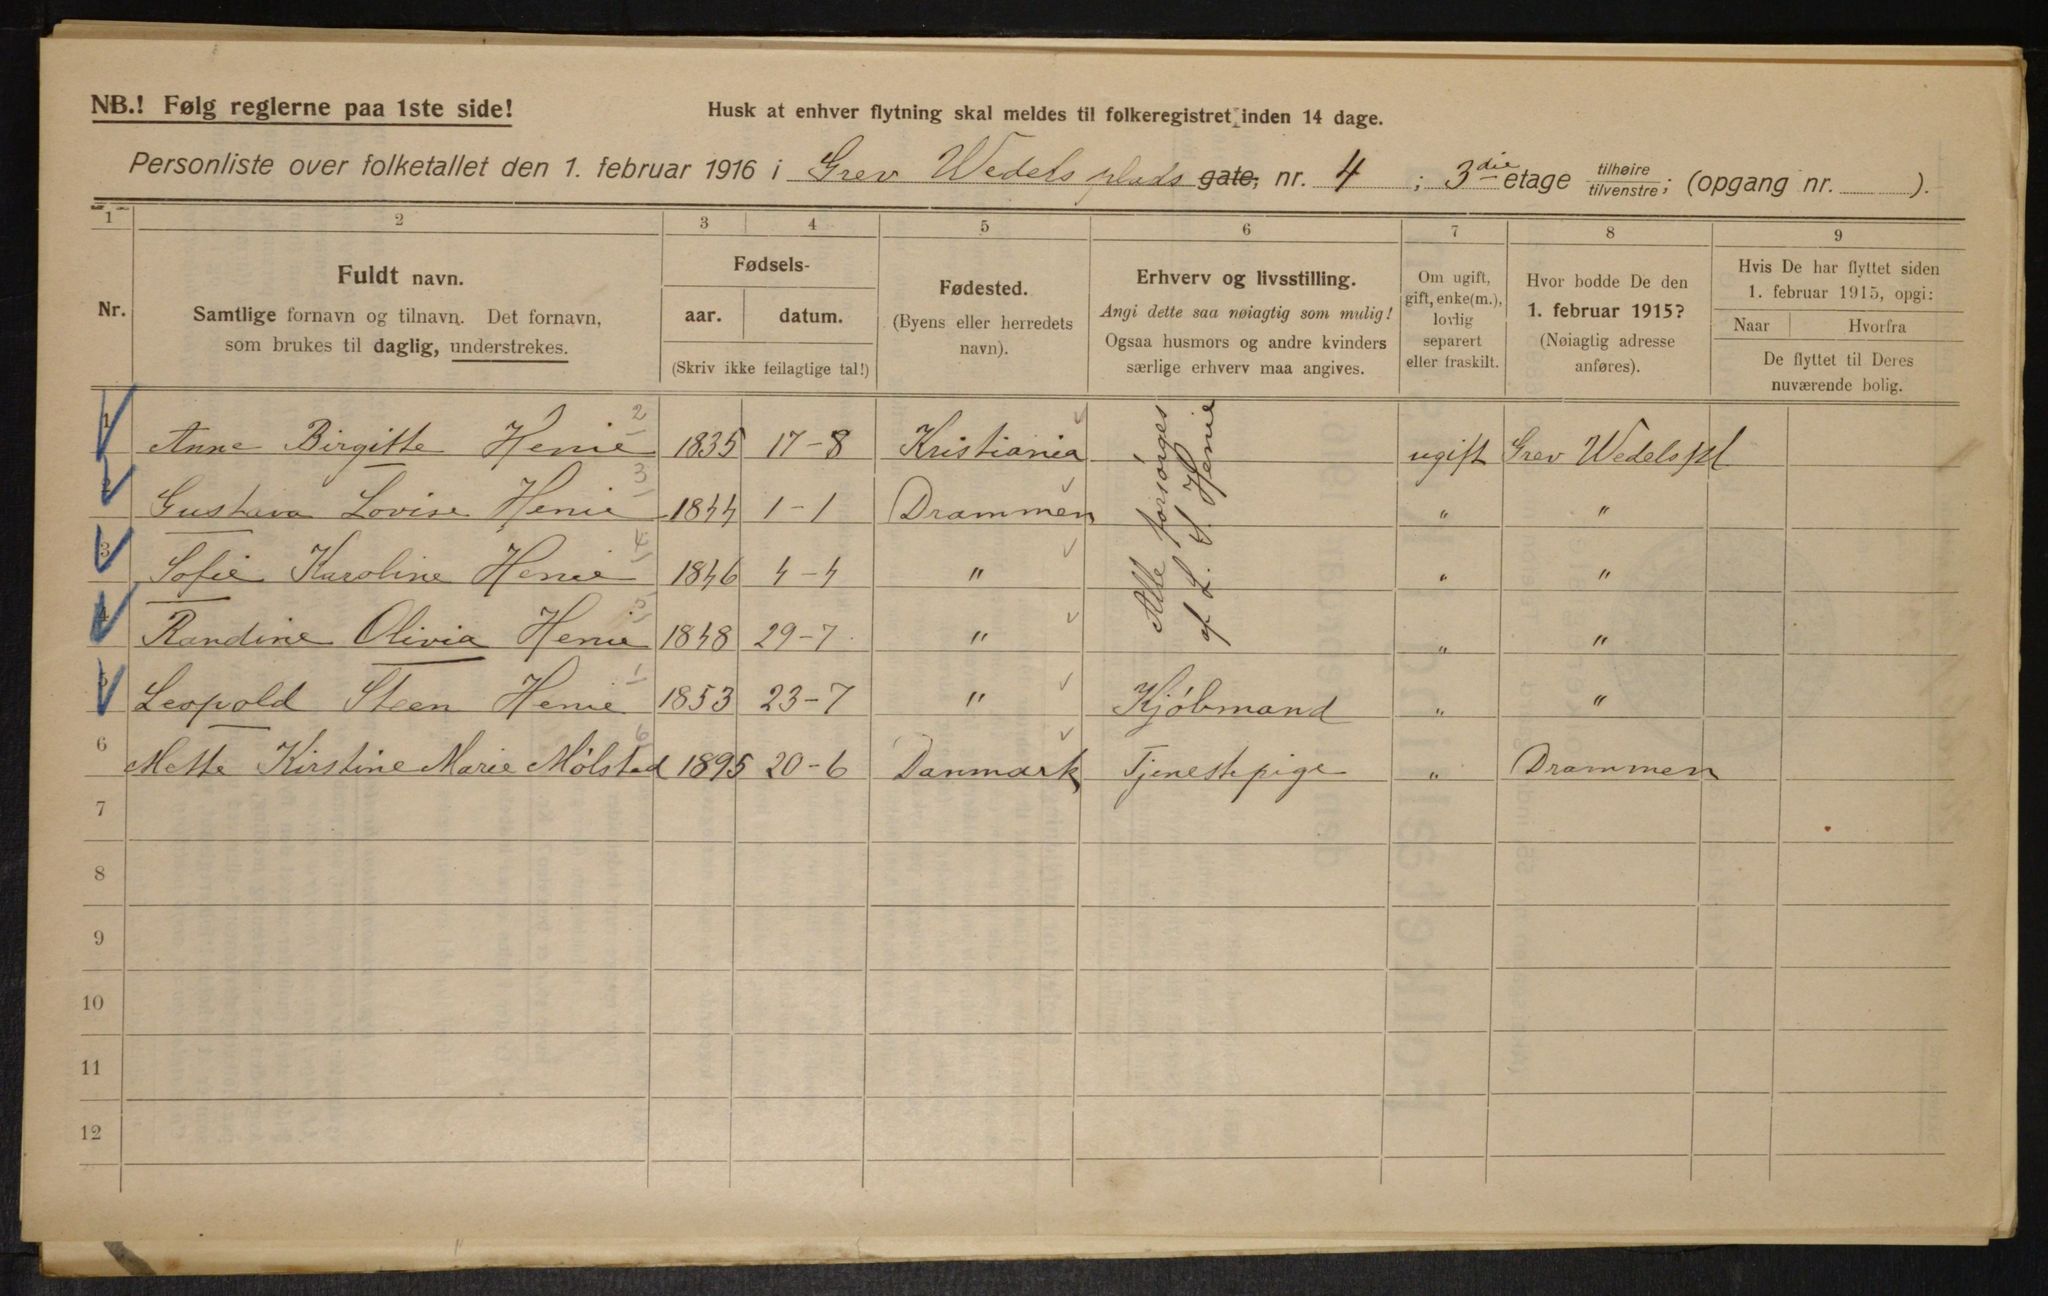 NB.! Følg reglerne paa 1ste side!
Husk at enhver flytning skal meldes til folkeregistret inden 14 dage.
Personliste over folketallet den 1. februar 1916 i Grev Wedels plads gate, nr. 4 ; 3die etage tilhøire/tilvenstre; (opgang nr. ).
1 2 3 4 5 6 7 8 9
Nr.
Fuldt navn.
Samtlige fornavn og tilnavn. Det fornavn,
som brukes til daglig, understrekes.
Fødsels-
aar. datum.
(Skriv ikke feilagtige tal!)
Fødested.
(Byens eller herredets
navn).
Erhverv og livsstilling.
Angi dette saa nøiagtig som mulig!
Ogsaa husmors og andre kvinders
særlige erhverv maa angives.
Om ugift,
gift, enke(m.),
lovlig
separert
eller fraskilt.
Hvor bodde De den
1. februar 1915?
(Nøiagtig adresse
anføres).
Hvis De har flyttet siden
1. februar 1915, opgi:
Naar Hvorfra
De flyttet til Deres
nuværende bolig.
1 Anne Birgitte Henie 2 1835 17-8 Kristiania ugift Grev Wedels pl
2 Gustava Lovise Henie 3 1844 1-1 Drammen " "
3 Sofie Karoline Henie 4 1846 4-4 " " "
4 Randine Olivia Henie 5 1848 29-7 " " "
Alle forsørges
af L. S. Henie
5 Leopold Steen Henie 1 1853 23-7 " Kjøbmand " "
6 Mette Kirstine Marie Mölsted 6 1895 20-6 Danmark Tjenestepige " Drammen
7
8
9
10
11
12